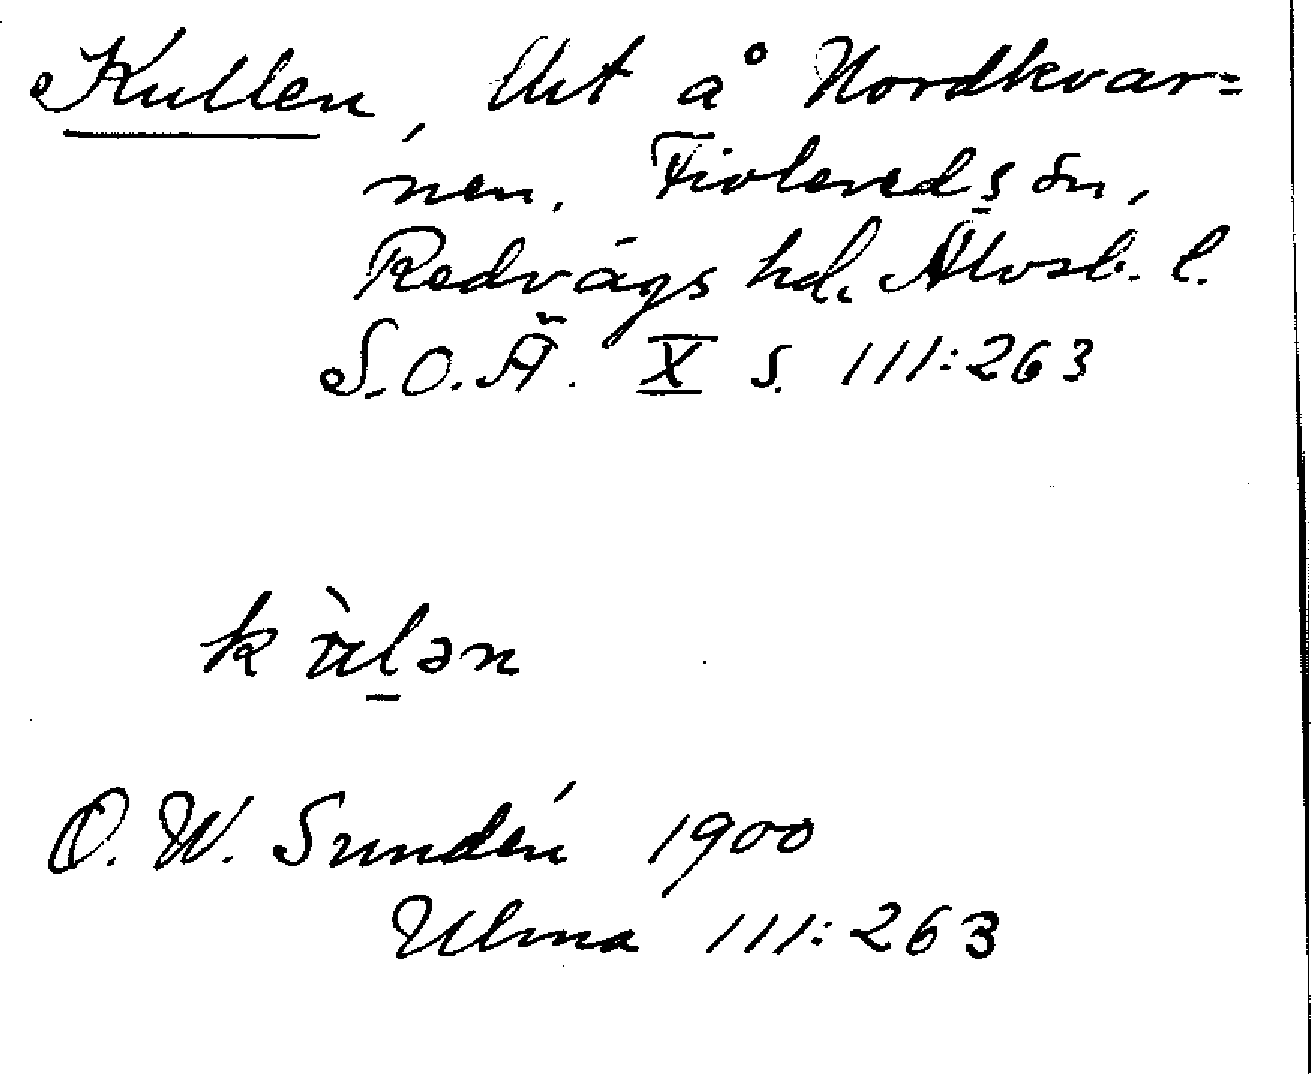 Kullen, lht å Nordkvar=
nen. Fivlereds sn,
Redvägs hd. Älvsb. l.
S.O.Ä. X s. 111:263
kùlən
O. W. Sundén 1900
Ulma 111:263